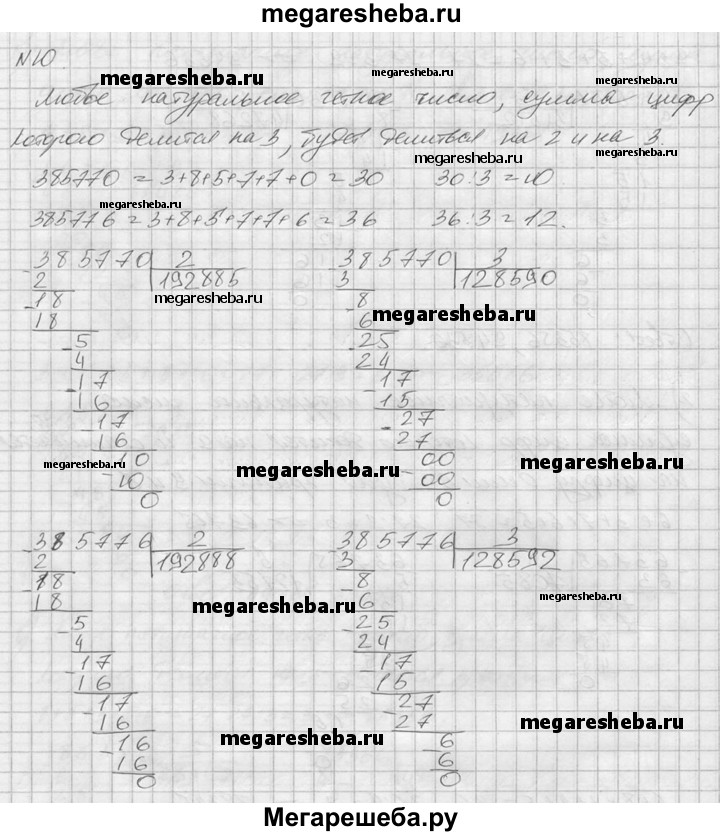 megaresheba.ru
N10.
megaresheba.ru megaresheba.ru
Любое натуральное четное число, сумма цифр
megaresheba.ru
которого делится на 3, будет делиться на 2 и на 3.
megaresheba.ru megaresheba.ru
385770 = 3+8+5+7+7+0 = 30 30:3 = 10
megaresheba.ru
385776 = 3+8+5+7+7+6 = 36 36:3 = 12.
385770 2 385770 3
2 192885 3 128590
18 8
megaresheba.ru
18 6
megaresheba.ru
5 25
4 24
17 17
16 15
17 27
16 27
megaresheba.ru megaresheba.ru megaresheba.ru
10 00
10 00
0 0
385776 2 385776 3
2 192888 3 128592
18 8
18 6
megaresheba.ru megaresheba.ru
5 25
4 24
17 17
16 15
17 27
16 27
megaresheba.ru megaresheba.ru
16 6
16 6
0 0
Мегарешеба.ру